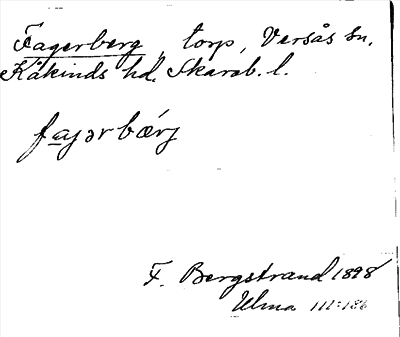 Fagerberg, torp, Versås sn.
Kåkinds hd. Skarab. l.
fajərbærj
F. Bergstrand 1898
Ulma 111:186